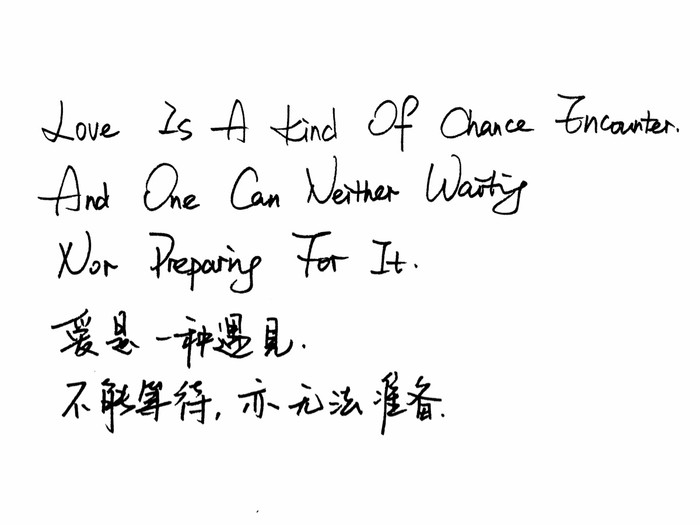 Love Is A Kind Of Chance Encounter.
And One Can Neither Waiting
Nor Preparing For It.
爱是一种遇見.
不能等待,亦无法准备.